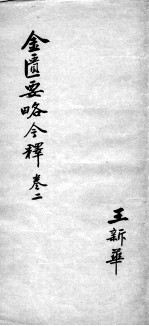 金匱要略今釋 卷二
王新華